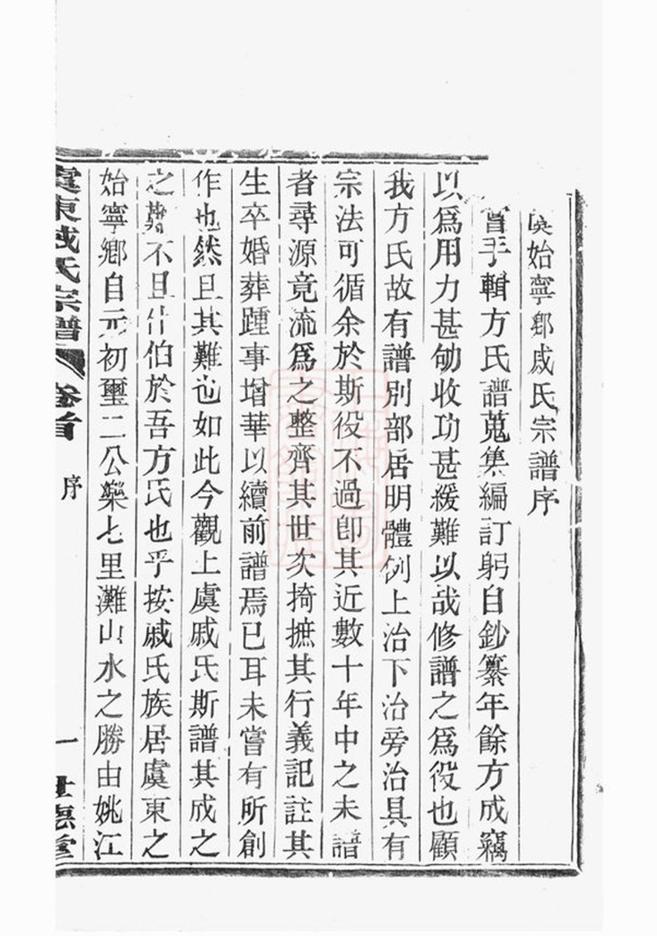 始寧鄉戚氏宗譜序
手輯方氏譜蒐集編訂躬自鈔纂年餘方成竊
以爲用力甚劬收功甚緩難以哉修譜之爲役也顧
我方氏故有譜別部居明體例上治下治旁治具有
宗法可循余於斯役不過卽其近數十年中之未譜
者尋源竟流爲之整齊其世次掎摭其行義記註其
生卒婚葬踵事增華以續前譜焉已耳未嘗有所創
作也然且其難也如此今觀上虞戚氏斯譜其成之
之難不且什伯於吾方氏也乎按戚氏族居虞東之
始寧鄉自元初璽二公樂七里灘山水之勝由姚江
虞東戚氏宗譜 卷首 序 一 世德堂